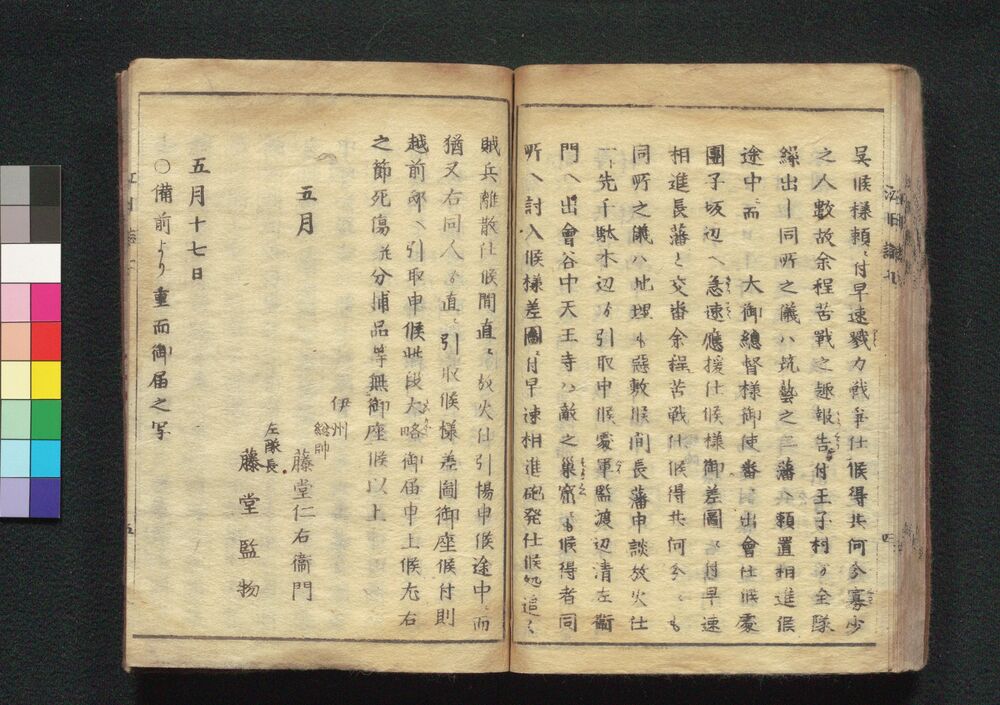 呉候様頼ミ付早速戮力戦争仕候得共何分寡少
之人数故余程苦戦之趣報告ニ付王子村ゟ全隊
繰出シ同所之儀ハ筑藝之二藩ヘ頼置相進候
途中ニ而 大御總督様御使番ニ出會仕候處
團子坂辺ヘ急速應援仕候様御差圖ニ付早速
相進長藩と交番余程苦戦仕候得共何分ニも
同所之儀ハ地理も惡敷候間長藩申談放火仕
一ト先千駄木辺ゟ引取申候處軍監渡辺清左衞
門ヘ出會谷中天王寺ハ敵之巣窟ニも候得者同
所ヘ討入候様差圖ニ付早速相進砲発仕候処追々
賊兵離散仕候間直ニ放火仕引揚申候途中ニ而
猶又右同人ゟ直ニ引取候様差圖御座候付則
越前邸ヘ引取申候此段大略御届申上候尤右
之節死傷并分捕品等無御座候以上
伊州
五月 総帥
藤堂仁右衞門
左隊長
藤堂監物
五月十七日
○備前より重而御届之写